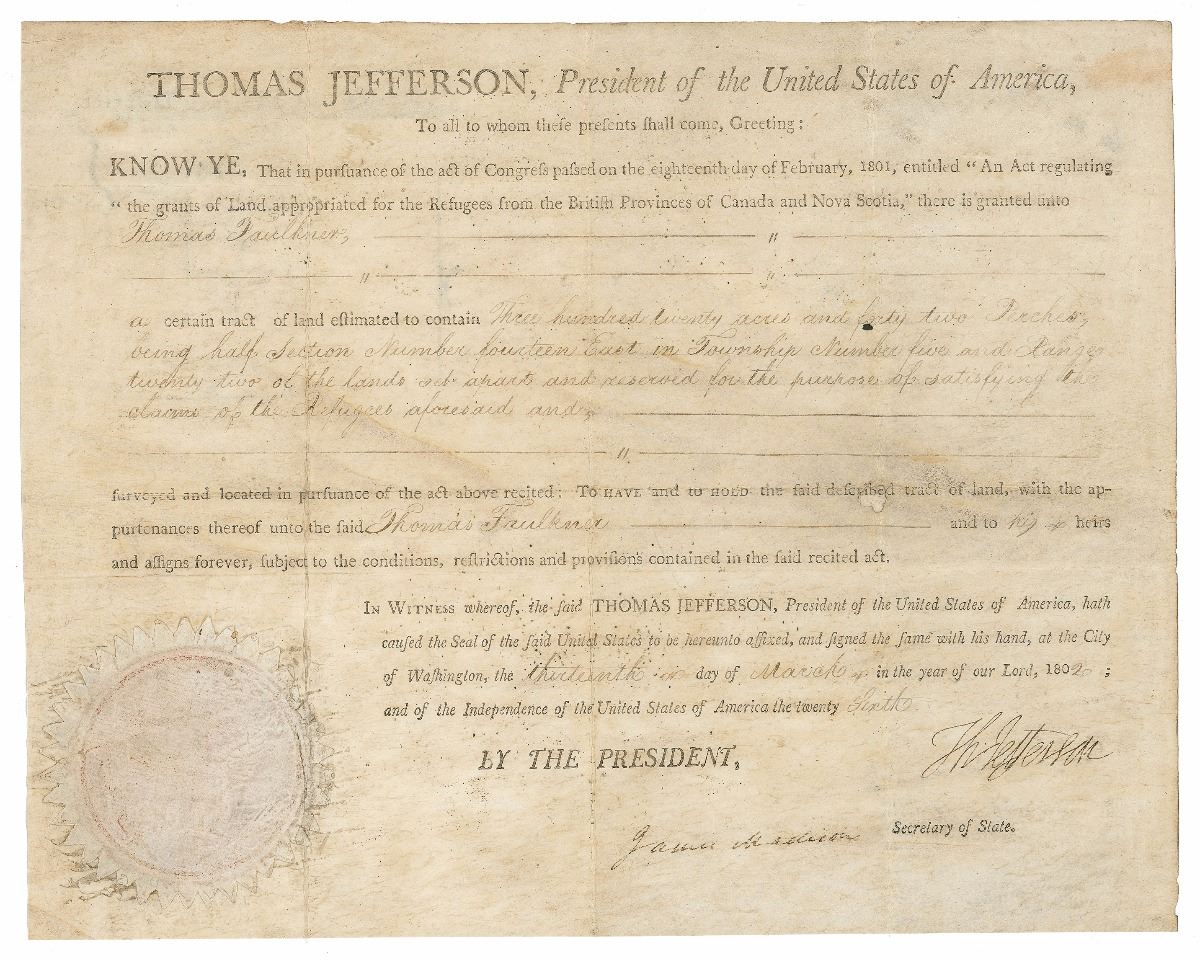 THOMAS JEFFERSON, President of the United States of America,
To all to whom theſe preſents ſhall come, Greeting:
KNOW YE, That in purſuance of the act of Congreſs paſſed on the eighteenth day of February, 1801, entitled “An Act regulating
“ the grants of Land appropriated for the Refugees from the Britiſh Provinces of Canada and Nova Scotia,” there is granted unto
Thomas Faulkner,
a certain tract of land eſtimated to contain Three hundred twenty acres and forty two Perches,
being half Section Number fourteen East in Township Number five and Range
twenty two of the lands set apart and reserved for the purpose of satisfying the
claims of the Refugees aforesaid and,
ſurveyed and located in purſuance of the act above recited: TO HAVE and TO HOLD the ſaid deſcribed tract of land, with the ap-
purtenances thereof unto the ſaid Thomas Faulkner and to his heirs
and aſſigns forever, ſubject to the conditions, reſtrictions and proviſions contained in the ſaid recited act.
IN WITNESS whereof, the ſaid THOMAS JEFFERSON, Preſident of the United States of America, hath
cauſed the Seal of the ſaid United States to be hereunto affixed, and ſigned the ſame with his hand, at the City
of Waſhington, the thirteenth day of March in the year of our Lord, 1802 ;
and of the Independence of the United States of America the twenty Sixth.
BY THE PRESIDENT,
Th Jefferson
James Madison Secretary of State.